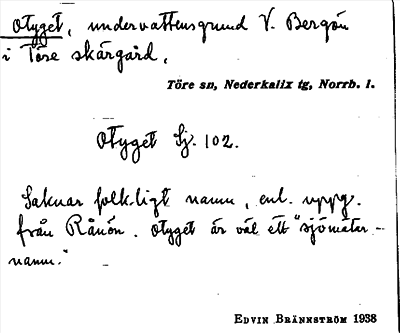 Otyget, undervattensgrund V. Bergön
i Töre skärgård.
Töre sn, Nederkalix tg, Norrb. l.
Otyget Sj. 102.
Saknar folkligt namn, enl. uppg.
från Rånön. Otyget är väl ett "sjömätar-
namn."
EDVIN BRÄNNSTRÖM 1938